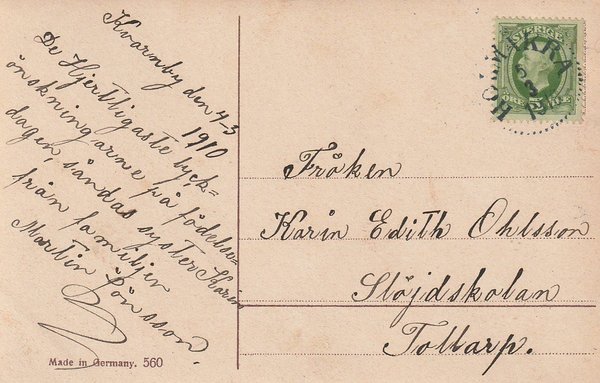 Kvarnby den 4-3
1910
De Hjertligaste lyck-
önskningarne på födelse-
dagen, sändas syster Karin
från familjen
Martin Jönsson.
SVERIGE
Fröken
Karin Edith Ohlsson
Slöjdskolan
Tollarp.
Made in Germany. 560